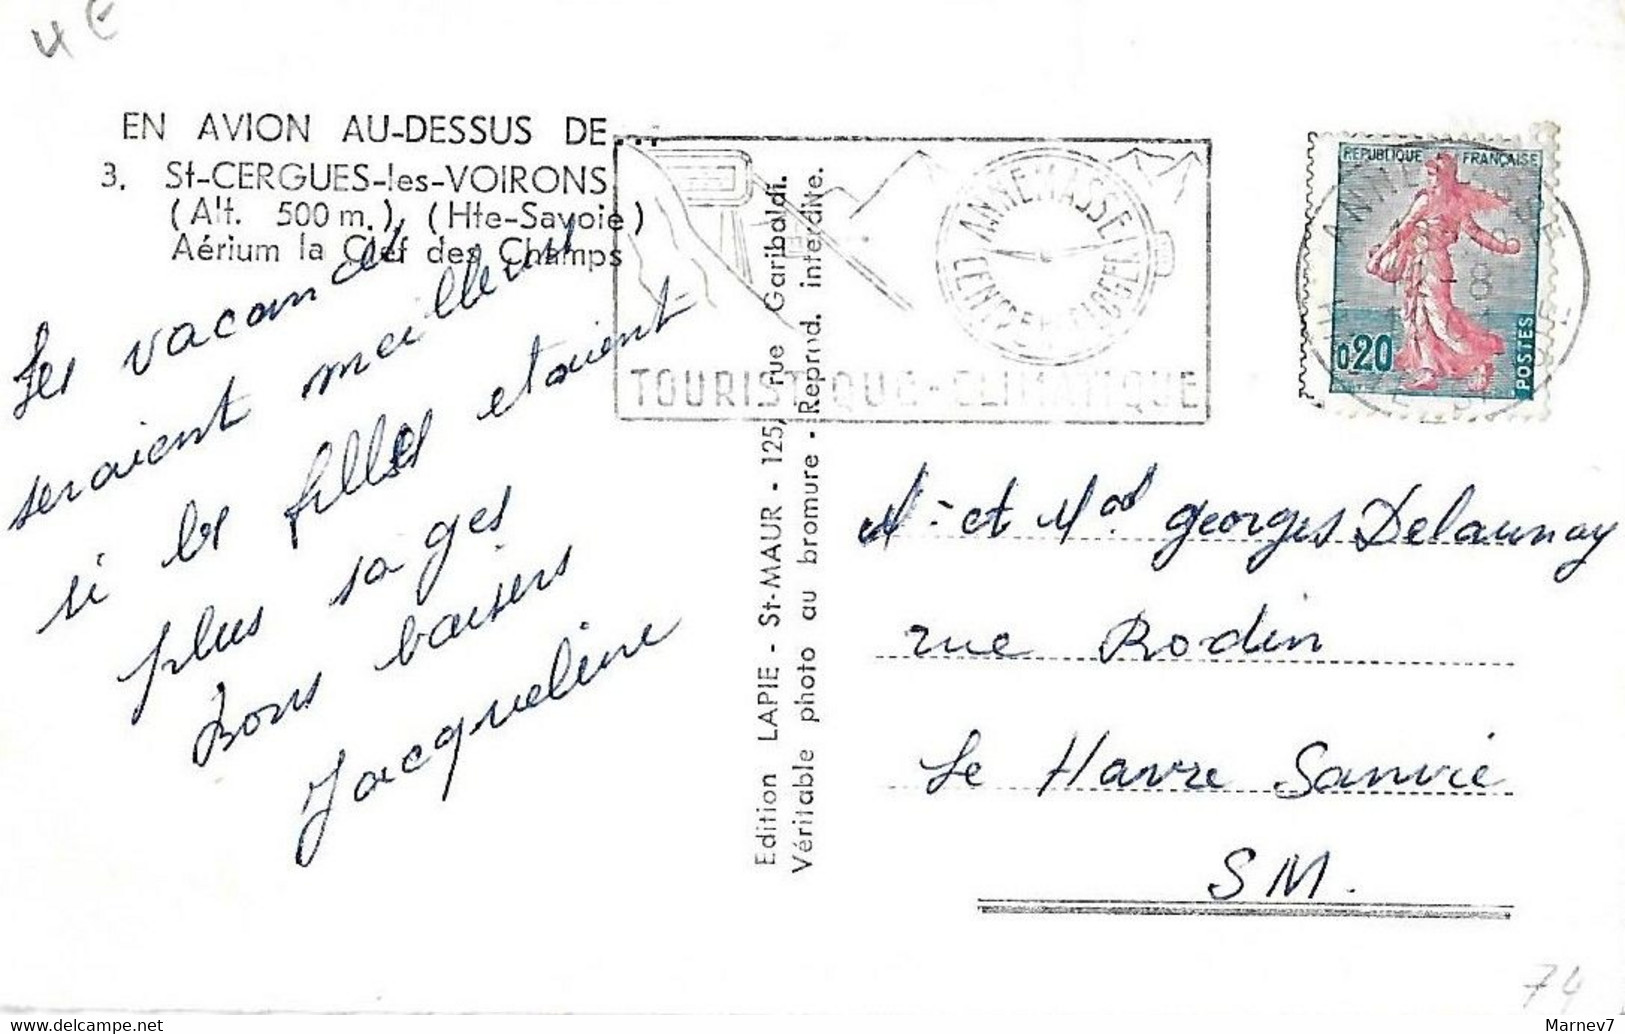 4 €
EN AVION AU-DESSUS DE...
3. St-CERGUES-les-VOIRONS
(Alt. 500 m.), (Hte-Savoie)
Aérium la Clef des Champs
Les vacances
seraient meilleures
si les filles etaient
plus sages
Bons baisers
Jacqueline
Edition LAPIE - St-MAUR - 125, rue Garibaldi.
Véritable photo au bromure - Reprod. interdite.
ANNEMASSE
TOURISTIQUE-CLIMATIQUE
REPUBLIQUE FRANÇAISE
0,20
POSTES
ANNEMASSE
HTE SAVOIE
M. et Mad georges Delaunay
rue Rodin
Le Havre Sanvic
SM.
74
www.delcampe.net
Marnev7